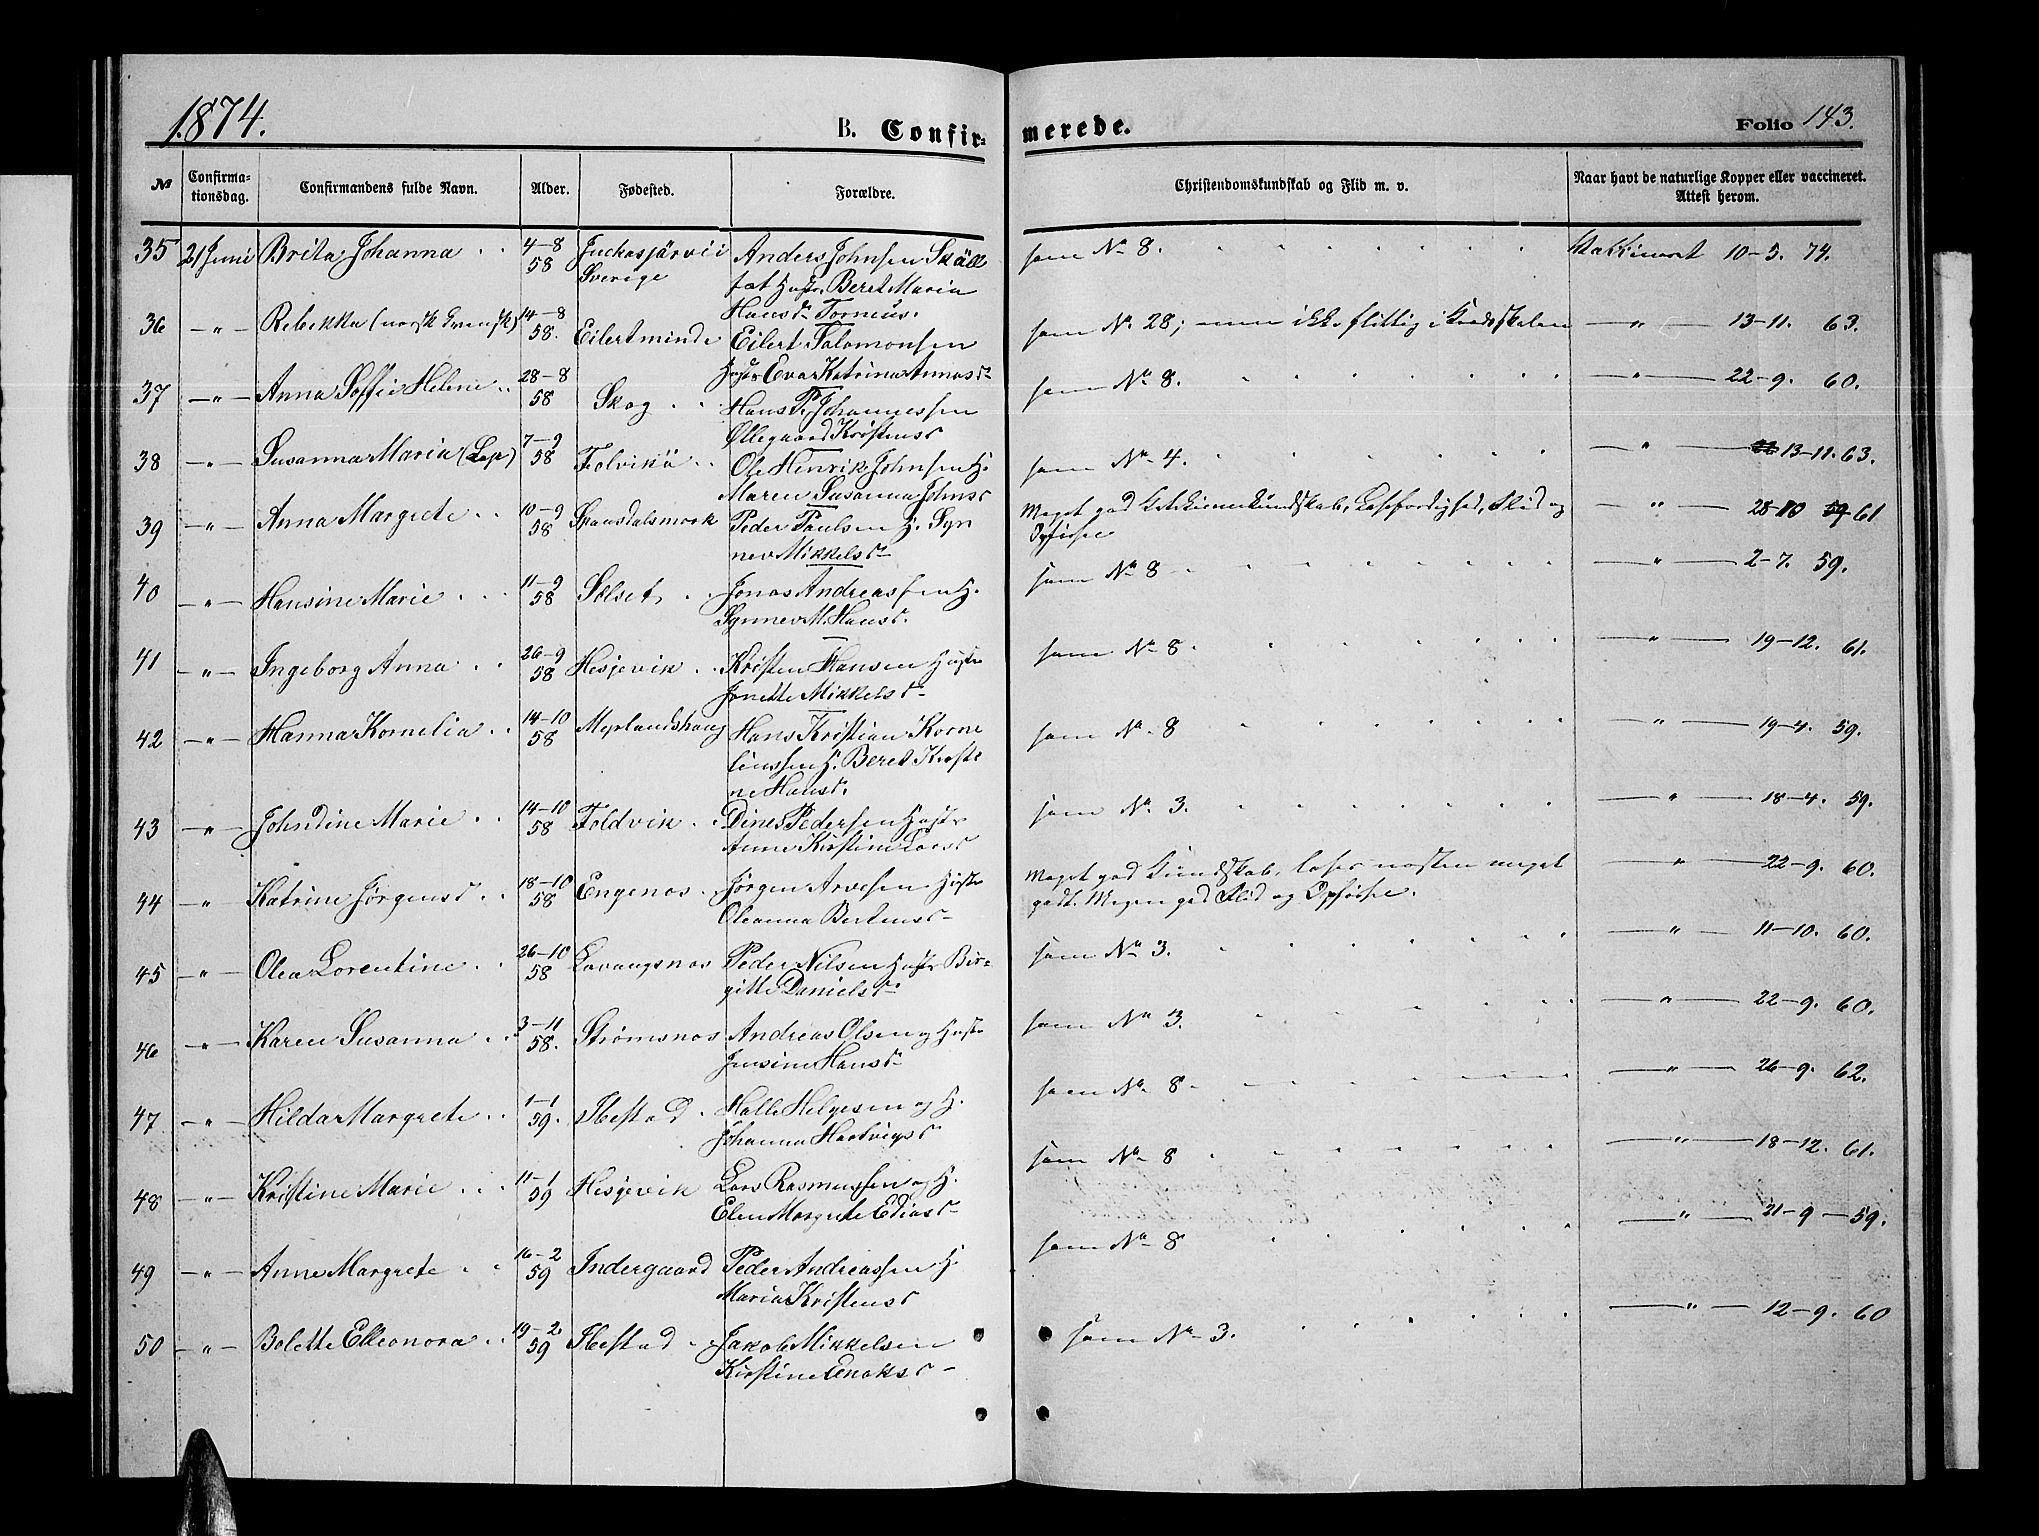 1874.
B. Confir-
merede.
Folio 143.
№
Confirma-
tionsdag.
Confirmandens fulde Navn.
Alder.
Fødested.
Forældre.
Christendomskundskab og Flid m. v.
Naar havt de naturlige Kopper eller vaccineret.
Attest herom.
35 21 Juni Brita Johanna 4-8 58 Juckasjärvi Sverige Anders Johnsen Skäll
fat Hustr. Beret Maria
Hansd. Torneus.
som No 8. Vakkineret 10-5. 74.
36 -"- Rebekka (norsk kvensk) 14-8 58. Eilertminde Eilert Salomonsen
Hustr Eva Katrina Annasd.
som No 28; men ikke flittig i Kredsskolen -"- 13-11. 63.
37 -"- Anna Soffie Helene 28-8 58 Skog Hans P. Johannessen
Øllegaard Kristensd
som No 8. -"- 22-9. 60.
38 -"- Susanna Maria (Lap) 7-9 58 Folvikø Ole Henrik Johnsen H.
Maren Susanna Johnsd
som No 4. -"- 13-11. 63.
39 -"- Anna Margrete 10-9 58 Spansdalsmark Peder Paulsen H. Syn
nev Mikkelsd
Meget god Kristendomskundskab, Læsefærdighed, Flid og
Opførsel
-"- 28-10 59 61
40 -"- Hansine Marie 11-9 58 Sælset Jonas Andreassen H.
Synnev M. Hansd.
som No 8 -"- 2-7. 59.
41 -"- Ingeborg Anna 26-9 58 Hesjevik Kristen Hansen Hustr
Jonette Mikkelsd
som No 8. -"- 19-12. 61.
42 -"- Hanna Kornelia 14-10 58 Myrlandshaug Hans Kristian Korne
liussen H. Beret Kirsti
ne Hansd.
som No 8 -"- 19-4. 59.
43 -"- Johndine Marie 14-10 58 Foldvik Dines Pedersen Hustr
Anne Kirstine Larsd
som No 3. -"- 18-4. 59.
44 -"- Katrine Jørgensd 18-10 58 Engenes Jørgen Arvesen Hustr
Oleanna Bertensd
Meget god Kundskab, læser næsten meget
godt. Megen god Flid og Opførsel.
-"- 22-9. 60.
45 -"- Olea Lorentine 26-10 58 Lavangsnes Peder Nilsen Hustr Bir-
gitte Danielsd
som No 3. -"- 11-10. 60.
46 -"- Karen Susanna 3-11 58. Strømsnes Andreas Olsen og Hustr
Jensine Hansd
som No 3. -"- 22-9. 60.
47 -"- Hilda Margrete 1-1 59. Ibestad Halle Helgesen og H.
Johanna Hartvigsd
som No 8 -"- 26-9. 62.
48 -"- Kristine Marie 11-1 59 Hesjevik Lars Rasmussen og H.
Elen Margrete Ediasd
som No 8 -"- 18-12. 61.
49 -"- Anne Margrete 16-2 59 Indergaard Peder Andreassen H.
Maria Kristensd
som No 8 -"- 21-9-59.
50 -"- Bolette Elleonora 19-2 59 Ibestad Jakob Mikkelsen
Kirstine Enoksd
som No 3. -"- 12-9. 60